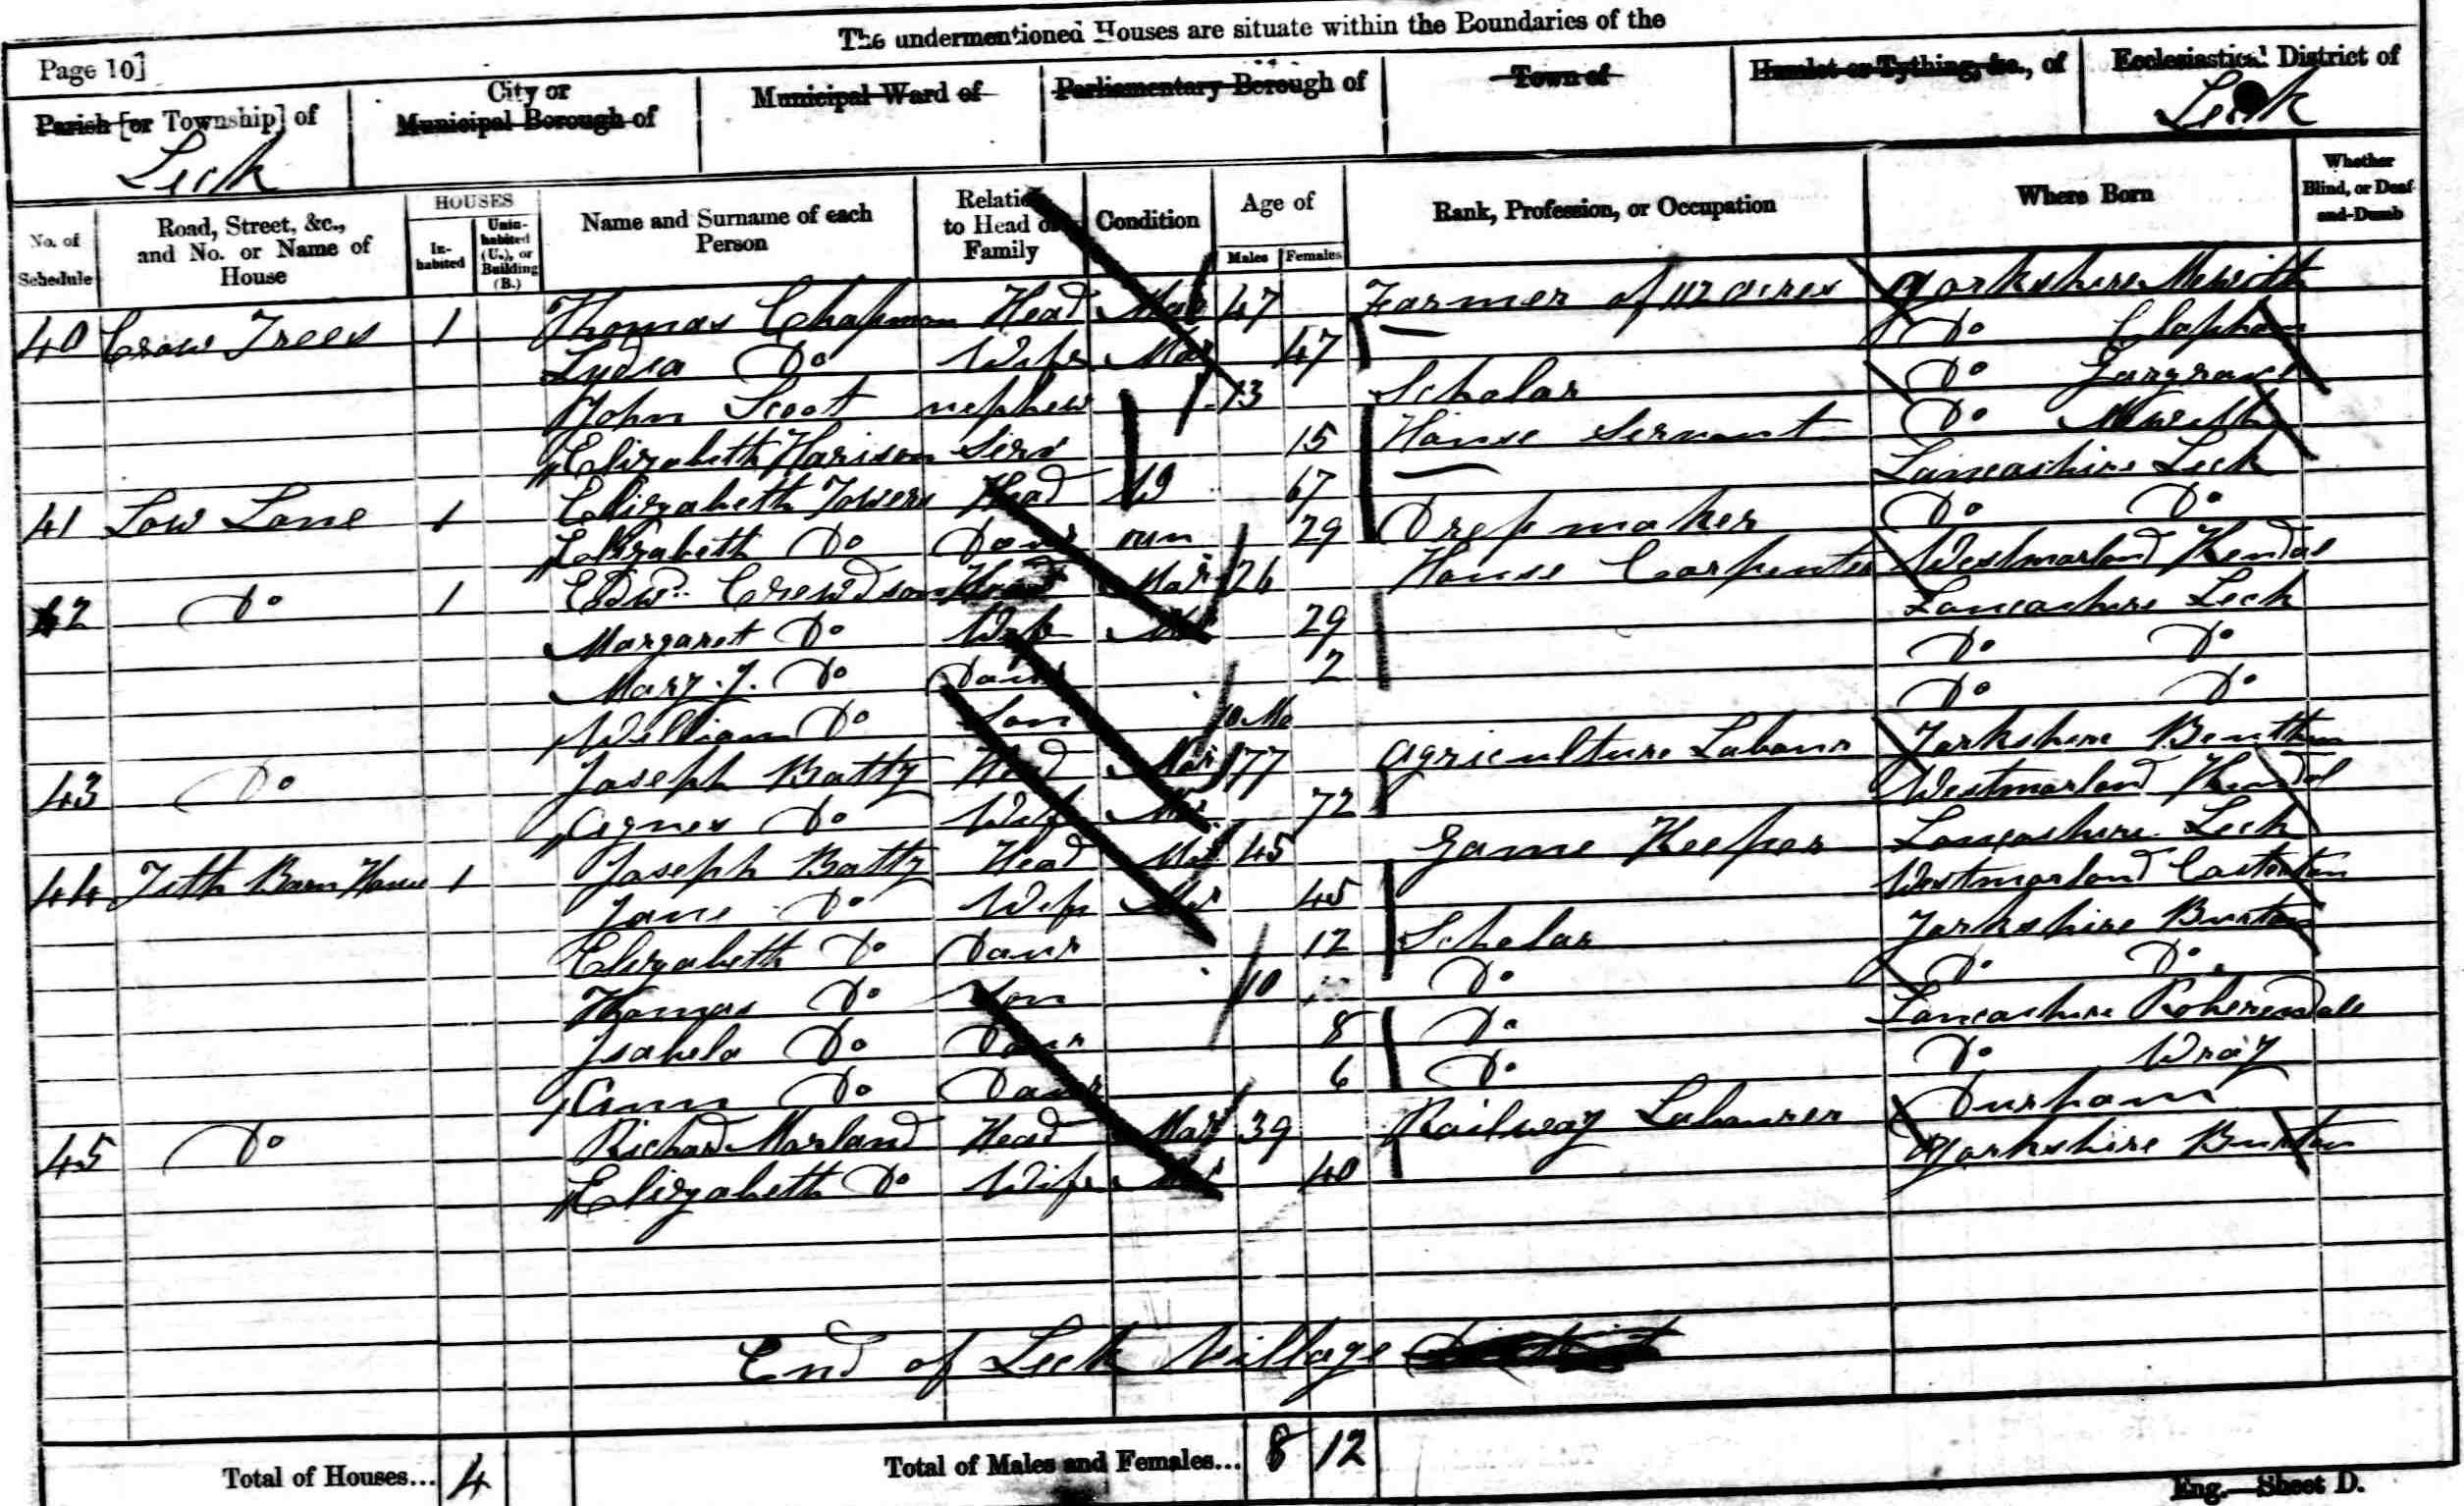 The undermentioned Houses are situate within the Boundaries of the
Page 10]
Parish [or Township] of
Leck
City or
Municipal Borough of
Municipal Ward of
Parliamentary Borough of
Town of
Hamlet or Tything, &c., of
Ecclesiastical District of
Leck
No. of Schedule
Road, Street, &c., and No. or Name of House
HOUSES
In-habited
Unin-habited (U.), or Building (B.)
Name and Surname of each Person
Relation to Head of Family
Condition
Age of
Males
Females
Rank, Profession, or Occupation
Where Born
Whether Blind, or Deaf-and-Dumb
40 Crow Trees 1 Thomas Chapman Head Mar 47 Farmer of 112 acres Yorkshire Mewith
Lydia Do Wife Mar 47 — Do Clapham
John Scoot nephew 13 Scholar Do Gargrave
Elizabeth Harison Serv 15 House Servant Do Mewith
41 Low Lane 1 Elizabeth Towers Head W 67 — Lancashire Leck
Elizabeth Do Daur un 29 Dressmaker Do Do
42 Do 1 Edwd. Crewdson Head Mar 26 House Carpenter Westmorland Kendal
Margaret Do Wife Mar 29 Lancashire Leck
Mary J. Do Daur 2 Do Do
William Do Son 10 Mo Do Do
43 Do Joseph Batty Head Mar 77 Agriculture Labour Yorkshire Bentham
Agnes Do Wife Mar 72 Westmorland Kendal
44 Tith Barn House 1 Joseph Batty Head Mar 45 Game Keeper Lancashire Leck
Jane Do Wife Mar 45 Westmorland Casterton
Elizabeth Do Daur 12 Scholar Yorkshire Burton
Thomas Do Son 10 Do Do Do
Isabela Do Daur 8 Do Lancashire
Ann Do Daur 6 Do Do Wray
45 Do Richard Marland Head Mar 39 Railway Labourer Durham
Elizabeth Do Wife Mar 40 Yorkshire Burton
End of Leck Village
Total of Houses... 4
Total of Males and Females... 8 12
Eng.—Sheet D.